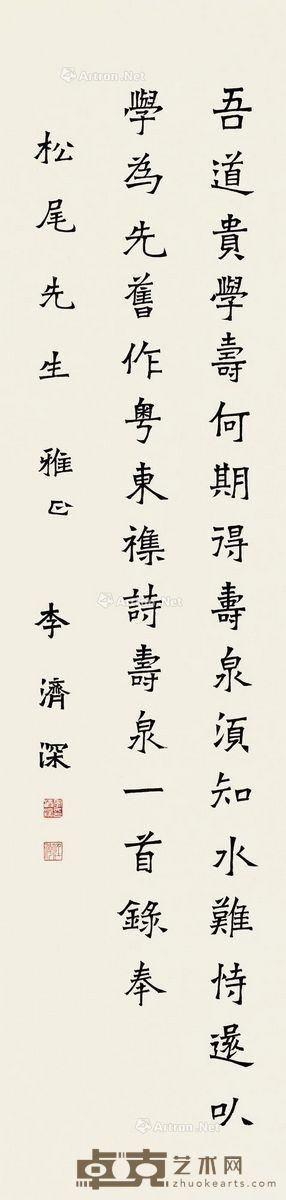 吾道貴學壽何期得壽泉湏知水難恃還㕥
學為先舊作粵東襍詩壽泉一首錄奉
松尾先生 雅正 李濟深
Artron.Net
Artron.Net
Artron.Net
卓克艺术网
www.zhuokearts.com